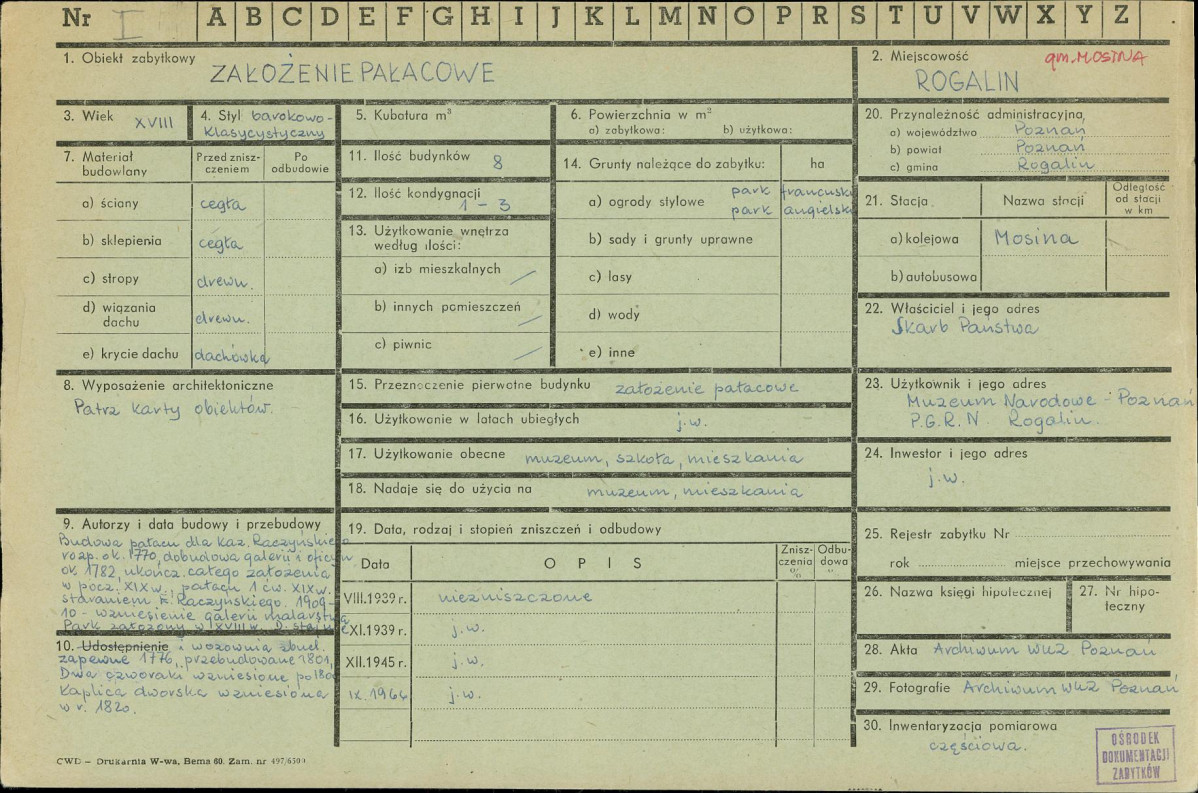 Nr I A B C D E F G H I J K L M N O P R S T U V W X Y Z
1. Obiekt zabytkowy
ZAŁOŻENIE PAŁACOWE
2. Miejscowość
gm. MOSINA
ROGALIN
3. Wiek XVIII
4. Styl barokowo-
klasycystyczny
5. Kubatura m³
6. Powierzchnia w m²
a) zabytkowa: b) użytkowa:
7. Materiał
budowlany
Przed znisz-
czeniem
Po
odbudowie
a) ściany cegła
b) sklepienia cegła
c) stropy drewn.
d) wiązania
dachu drewn.
e) krycie dachu dachówka
8. Wyposażenie architektoniczne
Patrz karty obiektów.
9. Autorzy i data budowy i przebudowy
Budowa pałacu dla Kaz. Raczyńskie
rozp. ok. 1770, dobudowa galerii i oficyn
ok. 1782, ukończ. całego założenia
w pocz. XIX w., pałacu 1 ćw. XIX w.
staraniem E. Raczyńskiego. 1909-
10 - wzniesienie galerii malarstwa
Park założony w XVIII w.
10. Udostępnienie i wozownia zbud.
zapewne 1776, przebudowane 1801,
Dwa czworaki wzniesione po
Kaplica dworska wzniesiona
w r. 1820.
11. Ilość budynków 8
12. Ilość kondygnacji
1 - 3
13. Użytkowanie wnętrza
według ilości:
a) izb mieszkalnych
b) innych pomieszczeń
c) piwnic
14. Grunty należące do zabytku: ha
a) ogrody stylowe park francuski
park angielski
b) sady i grunty uprawne
c) lasy
d) wody
e) inne
15. Przeznaczenie pierwotne budynku założenie pałacowe
16. Użytkowanie w latach ubiegłych j.w.
17. Użytkowanie obecne muzeum, szkoła, mieszkania
18. Nadaje się do użycia na muzeum, mieszkania
19. Data, rodzaj i stopień zniszczeń i odbudowy
Data
O P I S
Znisz-
czenia
%
Odbu-
dowa
VIII.1939 r. niezniszczone
XI.1939 r. j.w.
XII.1945 r. j.w.
IX.1964 j.w.
20. Przynależność administracyjna,
a) województwo Poznań
b) powiat Poznań
c) gmina Rogalin
21. Stacja
Nazwa stacji
Odległość
od stacji
w km
a) kolejowa Mosina
b) autobusowa
22. Właściciel i jego adres
Skarb Państwa
23. Użytkownik i jego adres
Muzeum Narodowe - Poznań
P.G.R.N. Rogalin.
24. Inwestor i jego adres
j.w.
25. Rejestr zabytku Nr
rok miejsce przechowywania
26. Nazwa księgi hipotecznej
27. Nr hipo-
teczny
28. Akta Archiwum WKZ Poznań
29. Fotografie Archiwum WKZ Poznań
30. Inwentaryzacja pomiarowa
częściowa.
OŚRODEK
DOKUMENTACJI
ZABYTKÓW
CWD - Drukarnia W-wa, Bema 60. Zam. nr 497/6500